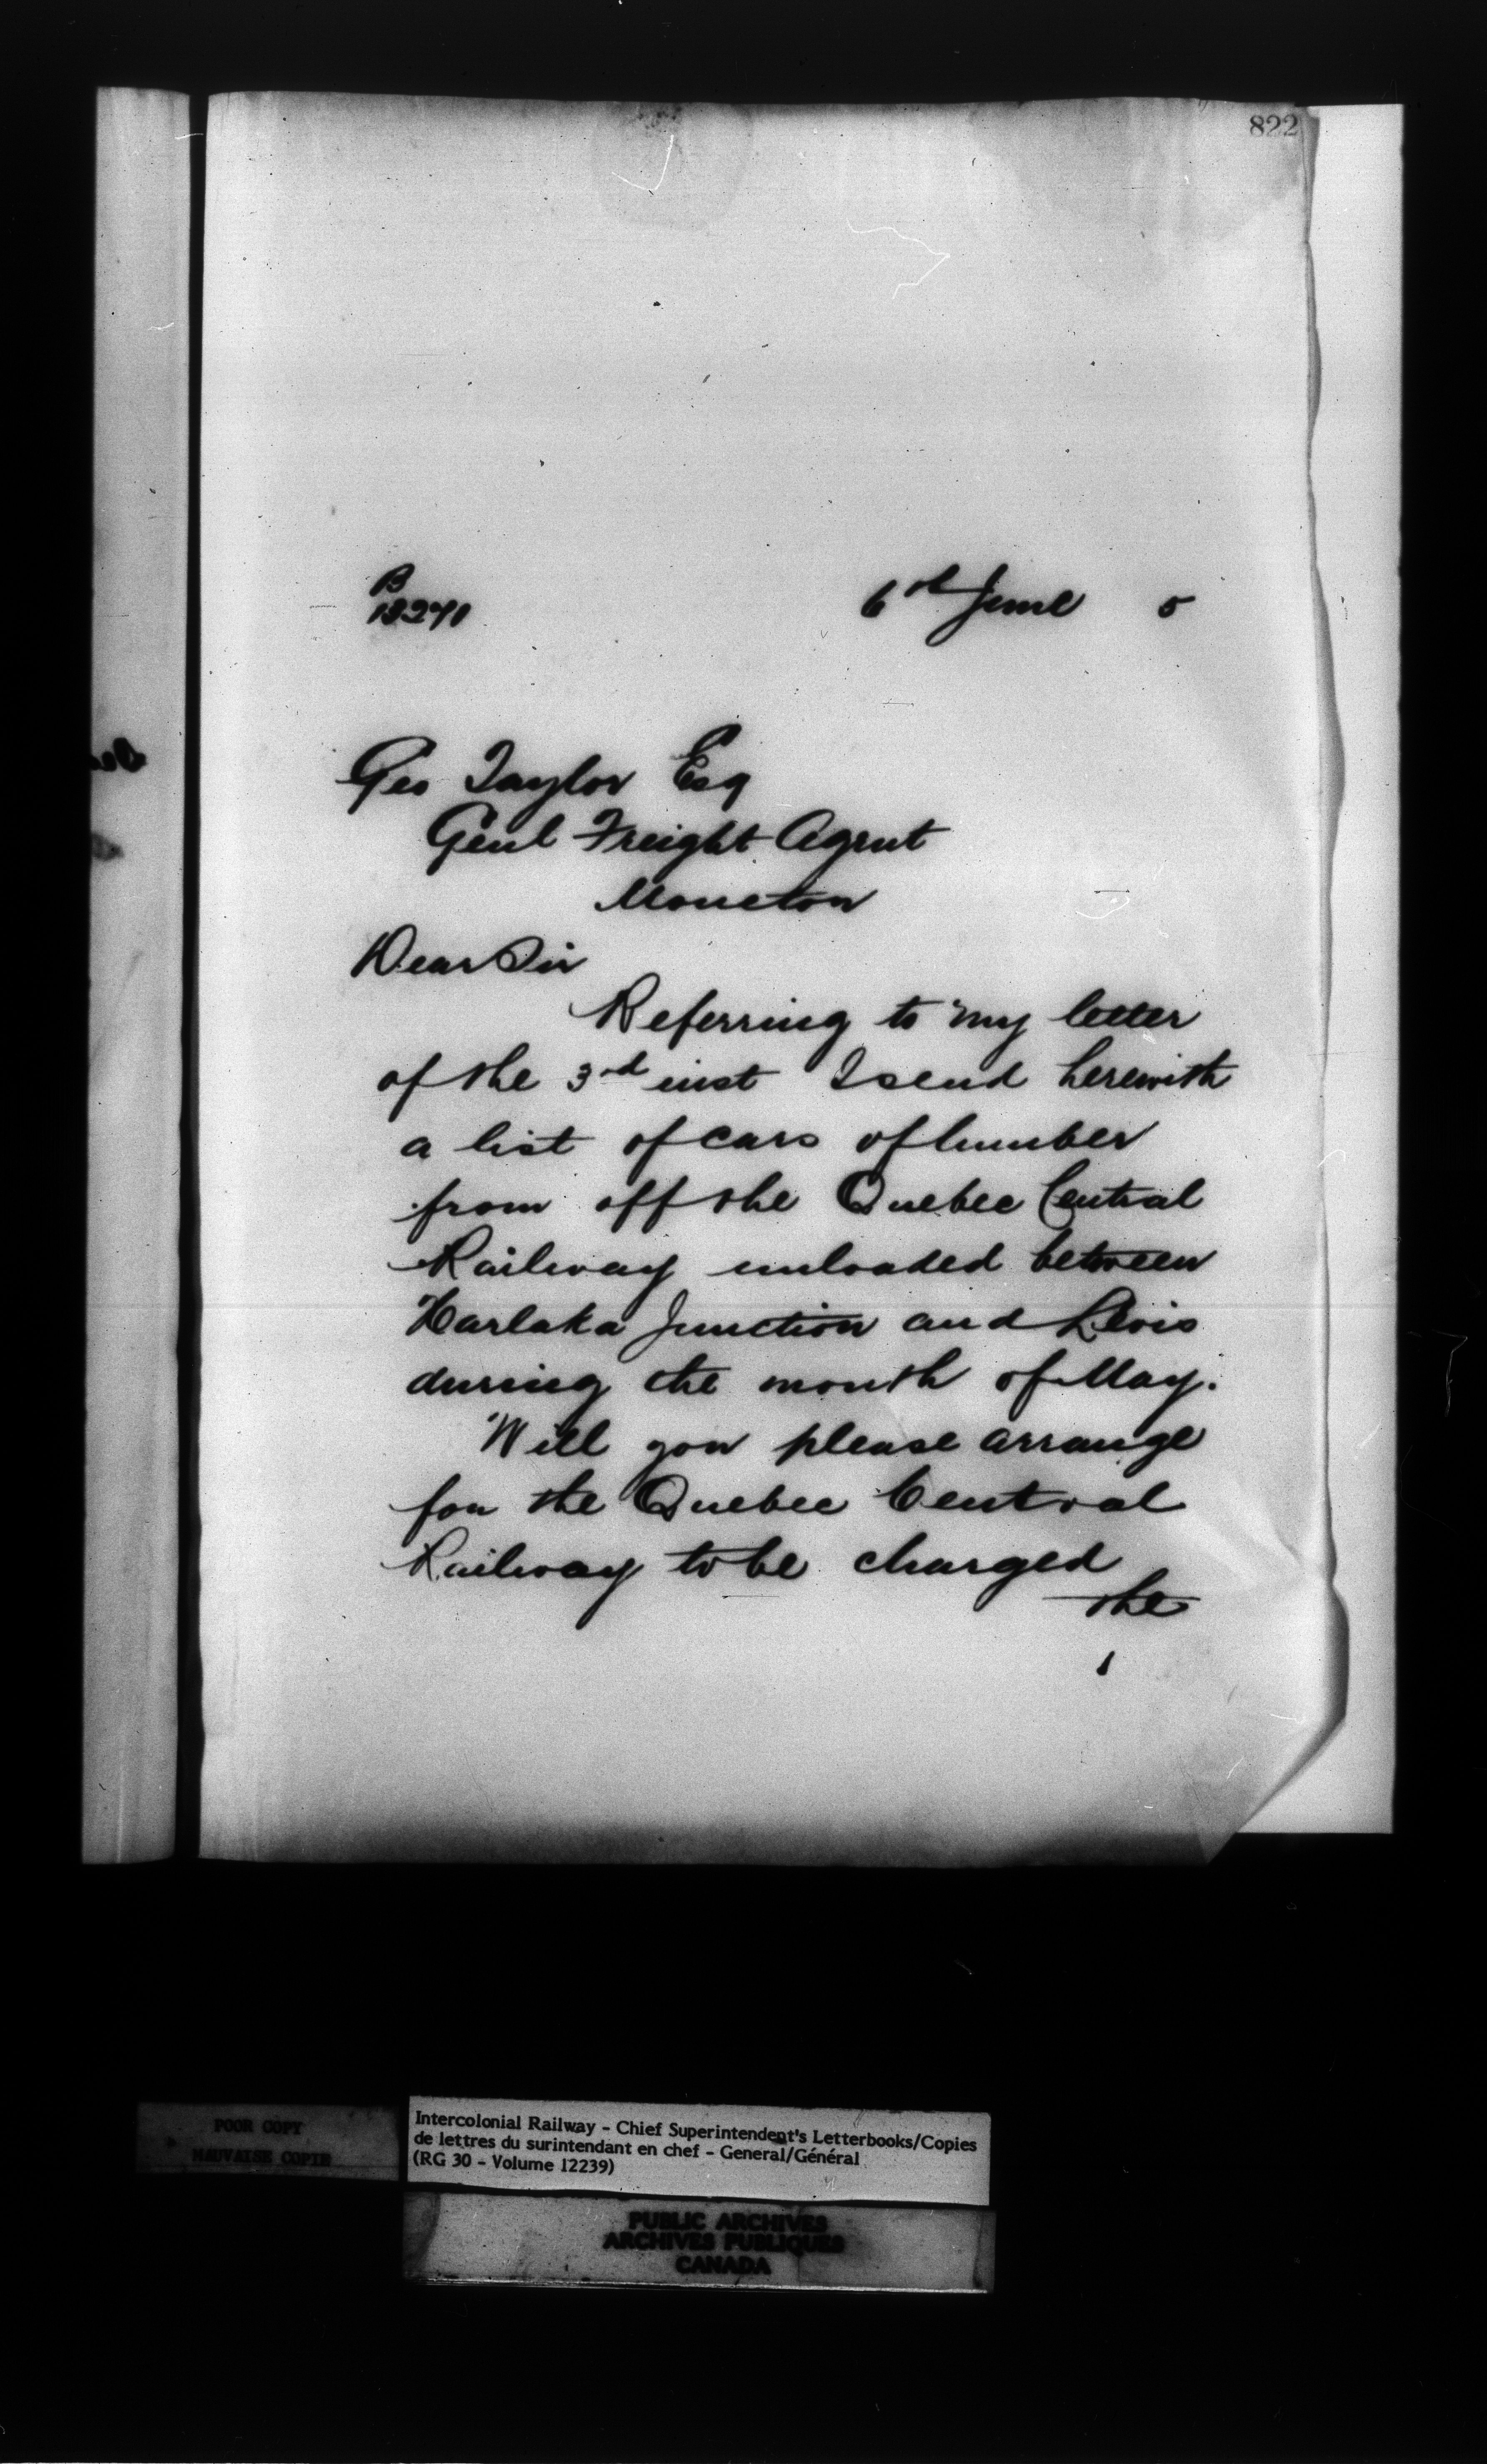 822
B
13271
6th June 5
Geo Taylor Esq
Genl Freight Agent
Moncton
Dear Sir
Referring to my letter
of the 3rd inst I send herewith
a list of cars of lumber
from off the Quebec Central
Railway unloaded between
Harlaka Junction and Levis
during the month of May.
Will you please arrange
for the Quebec Central
Railway to be charged
the
POOR COPY
MAUVAISE COPIE
Intercolonial Railway - Chief Superintendent's Letterbooks/Copies
de lettres du surintendant en chef - General/Général
(RG 30 - Volume 12239)
PUBLIC ARCHIVES
ARCHIVES PUBLIQUES
CANADA